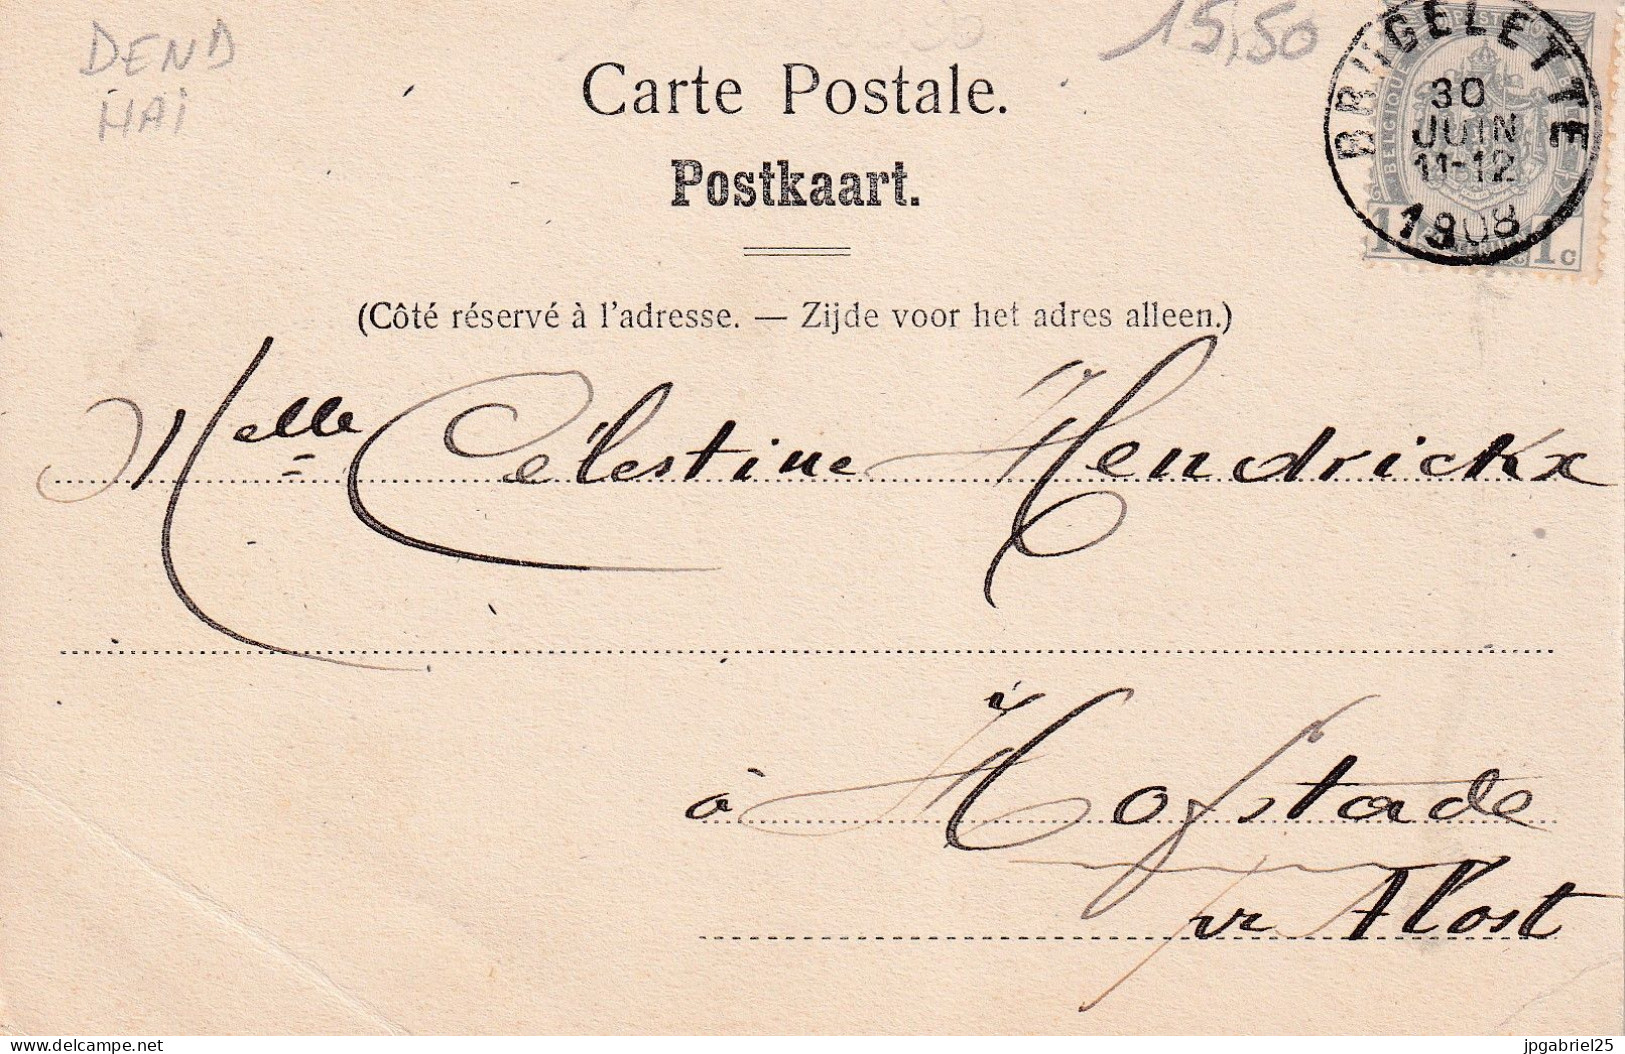 DEND
HAI
15,50
Carte Postale.
Postkaart.
BRUGELETTE
30
JUIN
11-12
1908
BELGIQUE
1 1c
(Côté réservé à l'adresse. — Zijde voor het adres alleen.)
Melle Célestine Hendrickx
à Hofstade
pr Alost
delcampe.net
jpgabriel25